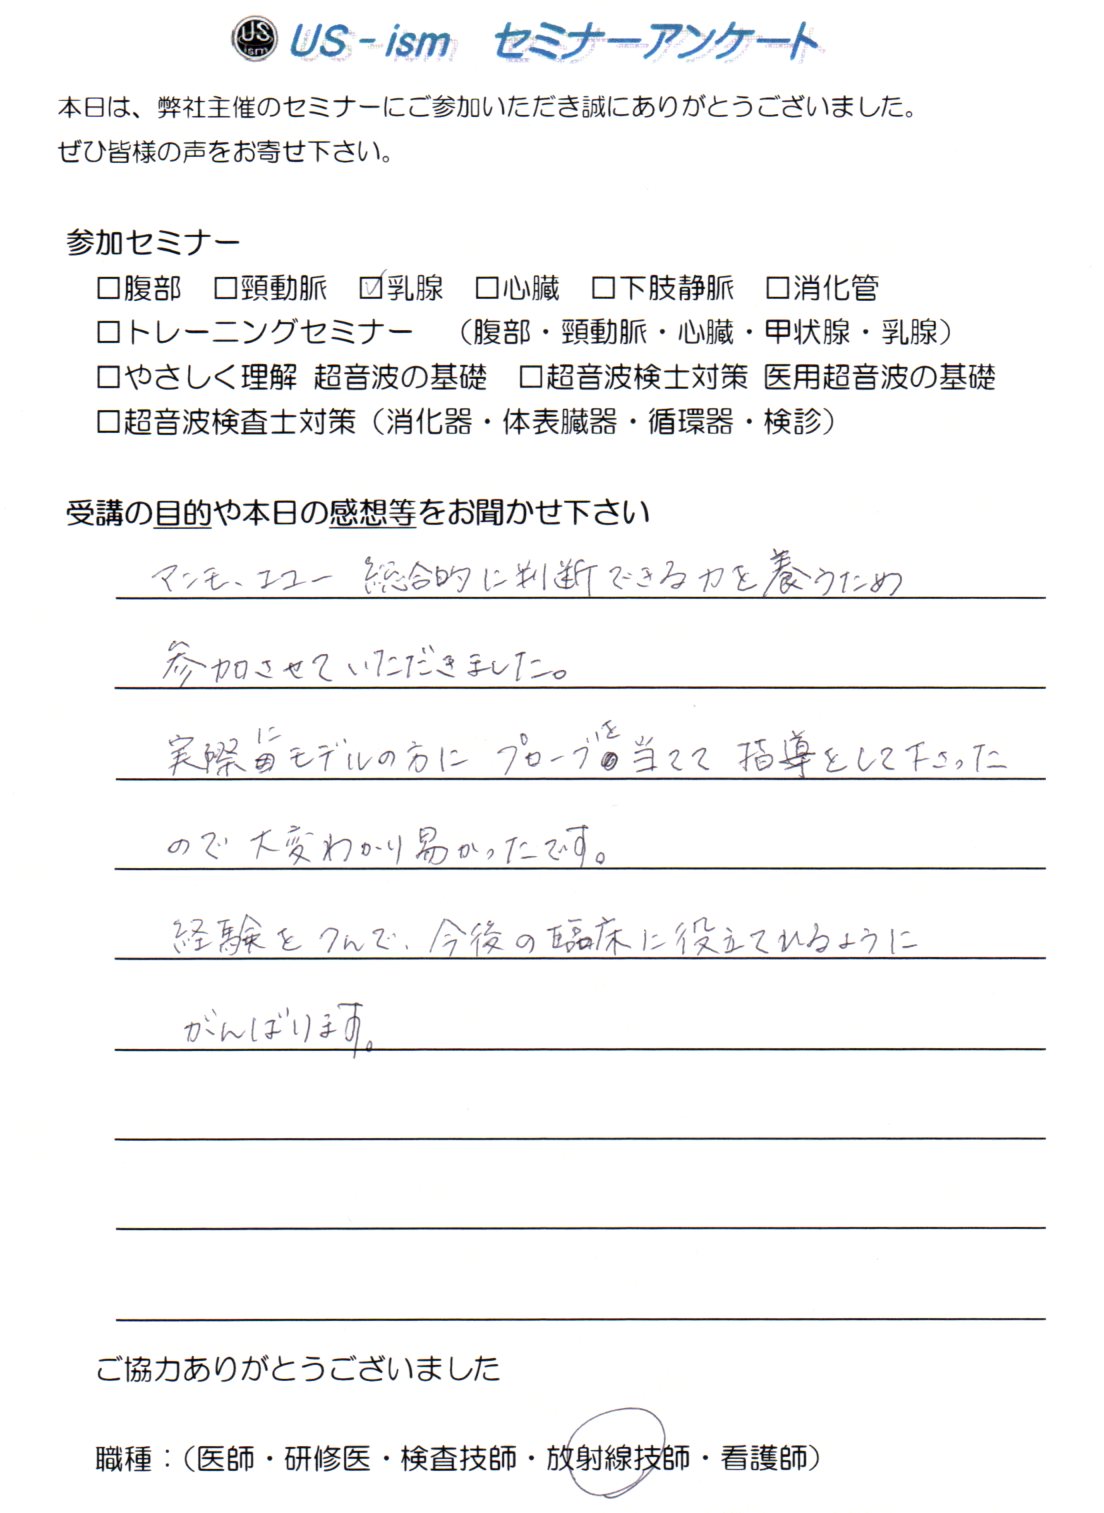 US ism US-ism セミナーアンケート
本日は、弊社主催のセミナーにご参加いただき誠にありがとうございました。
ぜひ皆様の声をお寄せ下さい。
参加セミナー
□腹部 □頸動脈 ☑乳腺 □心臓 □下肢静脈 □消化管
□トレーニングセミナー （腹部・頸動脈・心臓・甲状腺・乳腺）
□やさしく理解 超音波の基礎 □超音波検士対策 医用超音波の基礎
□超音波検査士対策（消化器・体表臓器・循環器・検診）
受講の目的や本日の感想等をお聞かせ下さい
マンモ、エコー 総合的に判断できる力を養うため
参加させていただきました。
実際にモデルの方に プローブを当てて 指導をして下さった
ので 大変わかり易かったです。
経験をつんで、今後の臨床に役立てれるように
がんばります。
ご協力ありがとうございました
職種：（医師・研修医・検査技師・放射線技師・看護師）